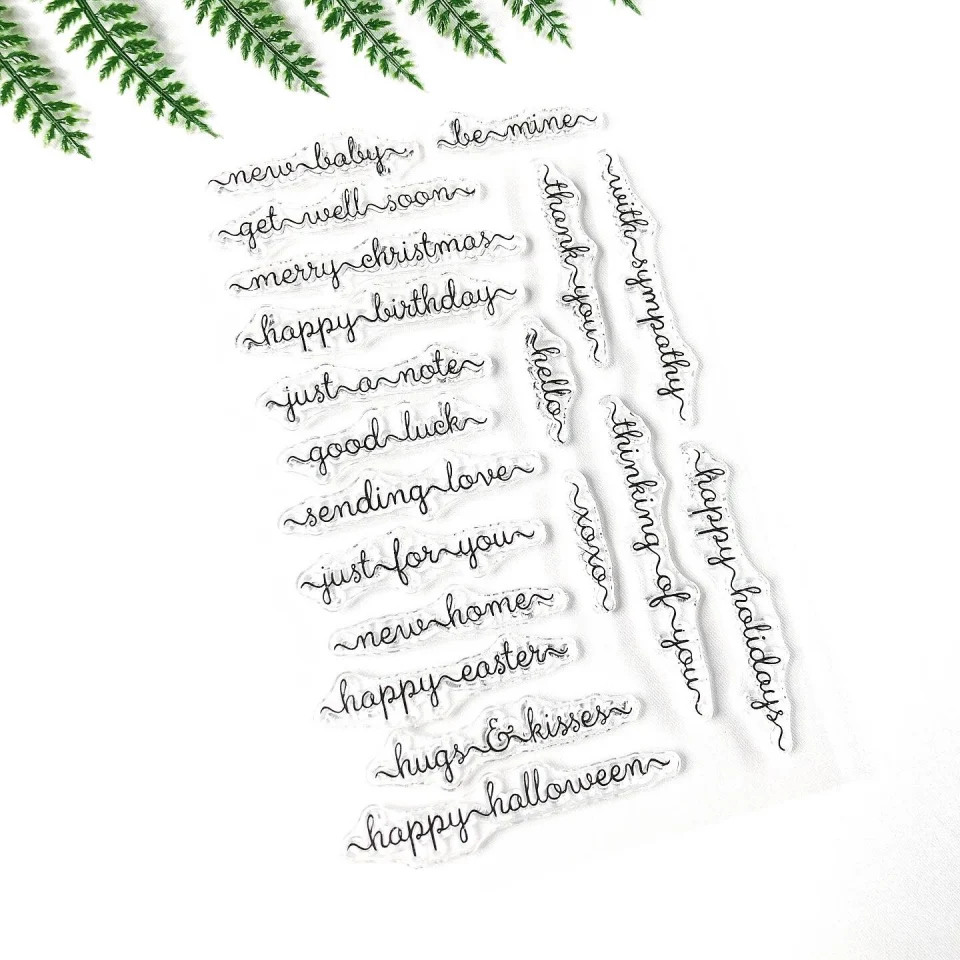 new baby
be mine
get well soon
merry christmas
happy birthday
just a note
good luck
sending love
just for you
new home
happy easter
hugs & kisses
happy halloween
thank you
with sympathy
hello
xoxo
thinking of you
happy holidays